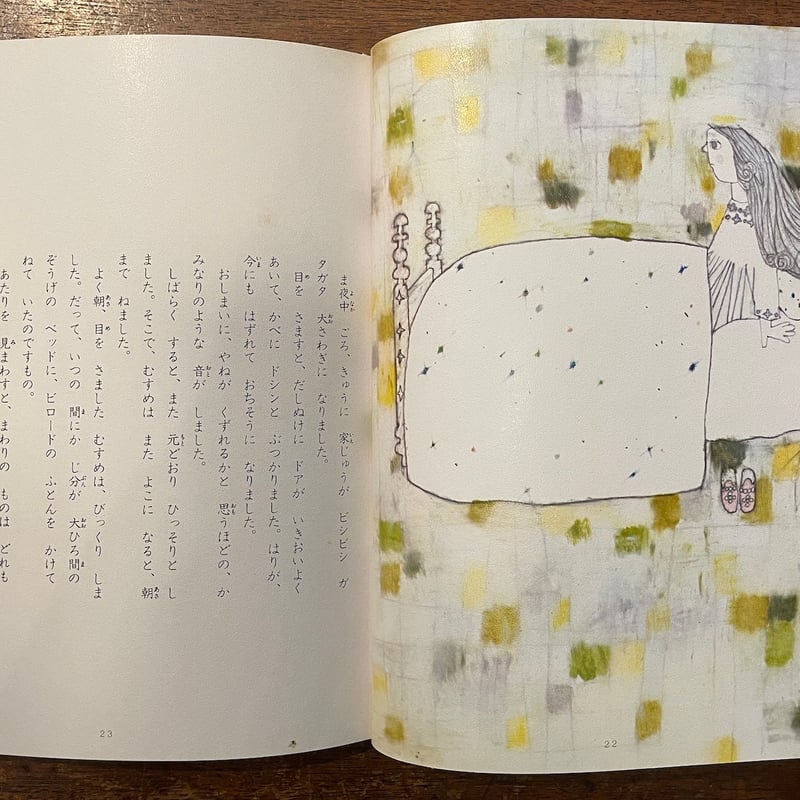 ま夜中 ごろ、きゅうに 家じゅうが ビシビシ ガ
タガタ 大さわぎに なりました。
目を さますと、だしぬけに ドアが いきおいよく
あいて、かべに ドシンと ぶつかりました。はりが、
今にも はずれて おちそうに なりました。
おしまいに、やねが くずれるかと 思うほどの、か
みなりのような 音が しました。
しばらく すると、また 元どおり ひっそりと し
ました。そこで、むすめは また よこに なると、朝
まで ねました。
よく朝、目を さました むすめは、びっくり しま
した。だって、いつの 間にか じ分が 大ひろ間の
ぞうげの ベッドに、ビロードの ふとんを かけて
ねて いたのですもの。
あたりを 見まわすと、まわりの ものは どれも
23
22